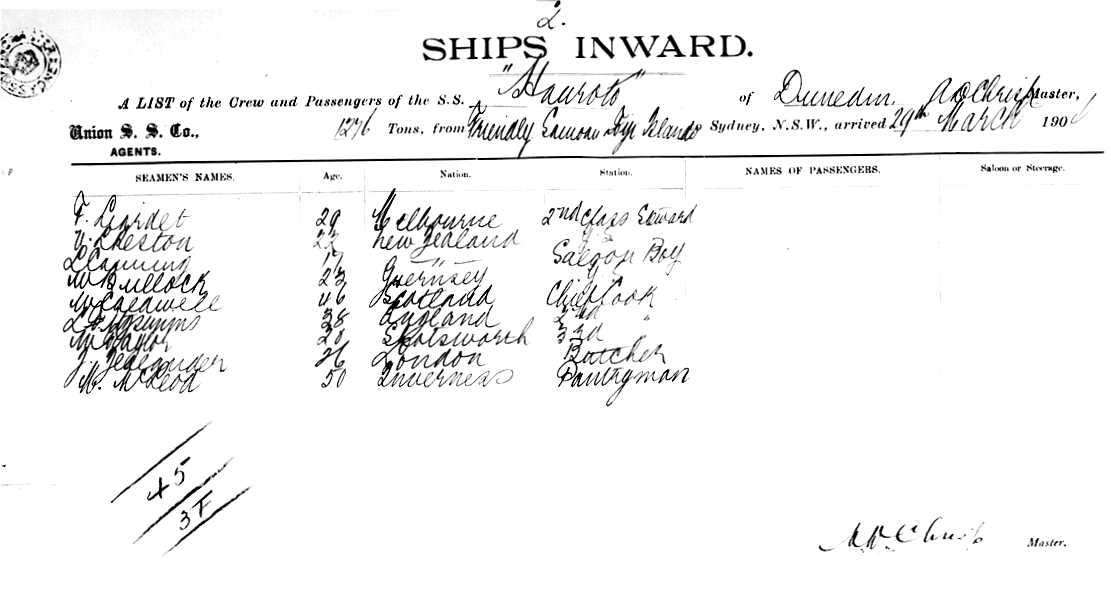 2.
SHIPS INWARD.
A LIST of the Crew and Passengers of the S.S. "Hauroto" of Dunedin, A D Christ Master,
Union S. S. Co., 1276 Tons, from Friendly Samoan Fiji Islands Sydney, N.S.W., arrived 29th March 190
AGENTS.
SEAMEN'S NAMES. Age. Nation. Station. NAMES OF PASSENGERS. Saloon or Steerage.
F. Liardet 29 Melbourne 2nd Class Steward
Cheston 22 New Zealand
L Canning 17 " Saloon Boy
W Bullock 23 Guernsey
W Caldwell 46 Scotland Chief Cook
38 England 2nd "
W Taylor 20 33d
J. 26 London Butcher
M. McLeod 50 Inverness Pantryman
45
3F
A D Christ Master.